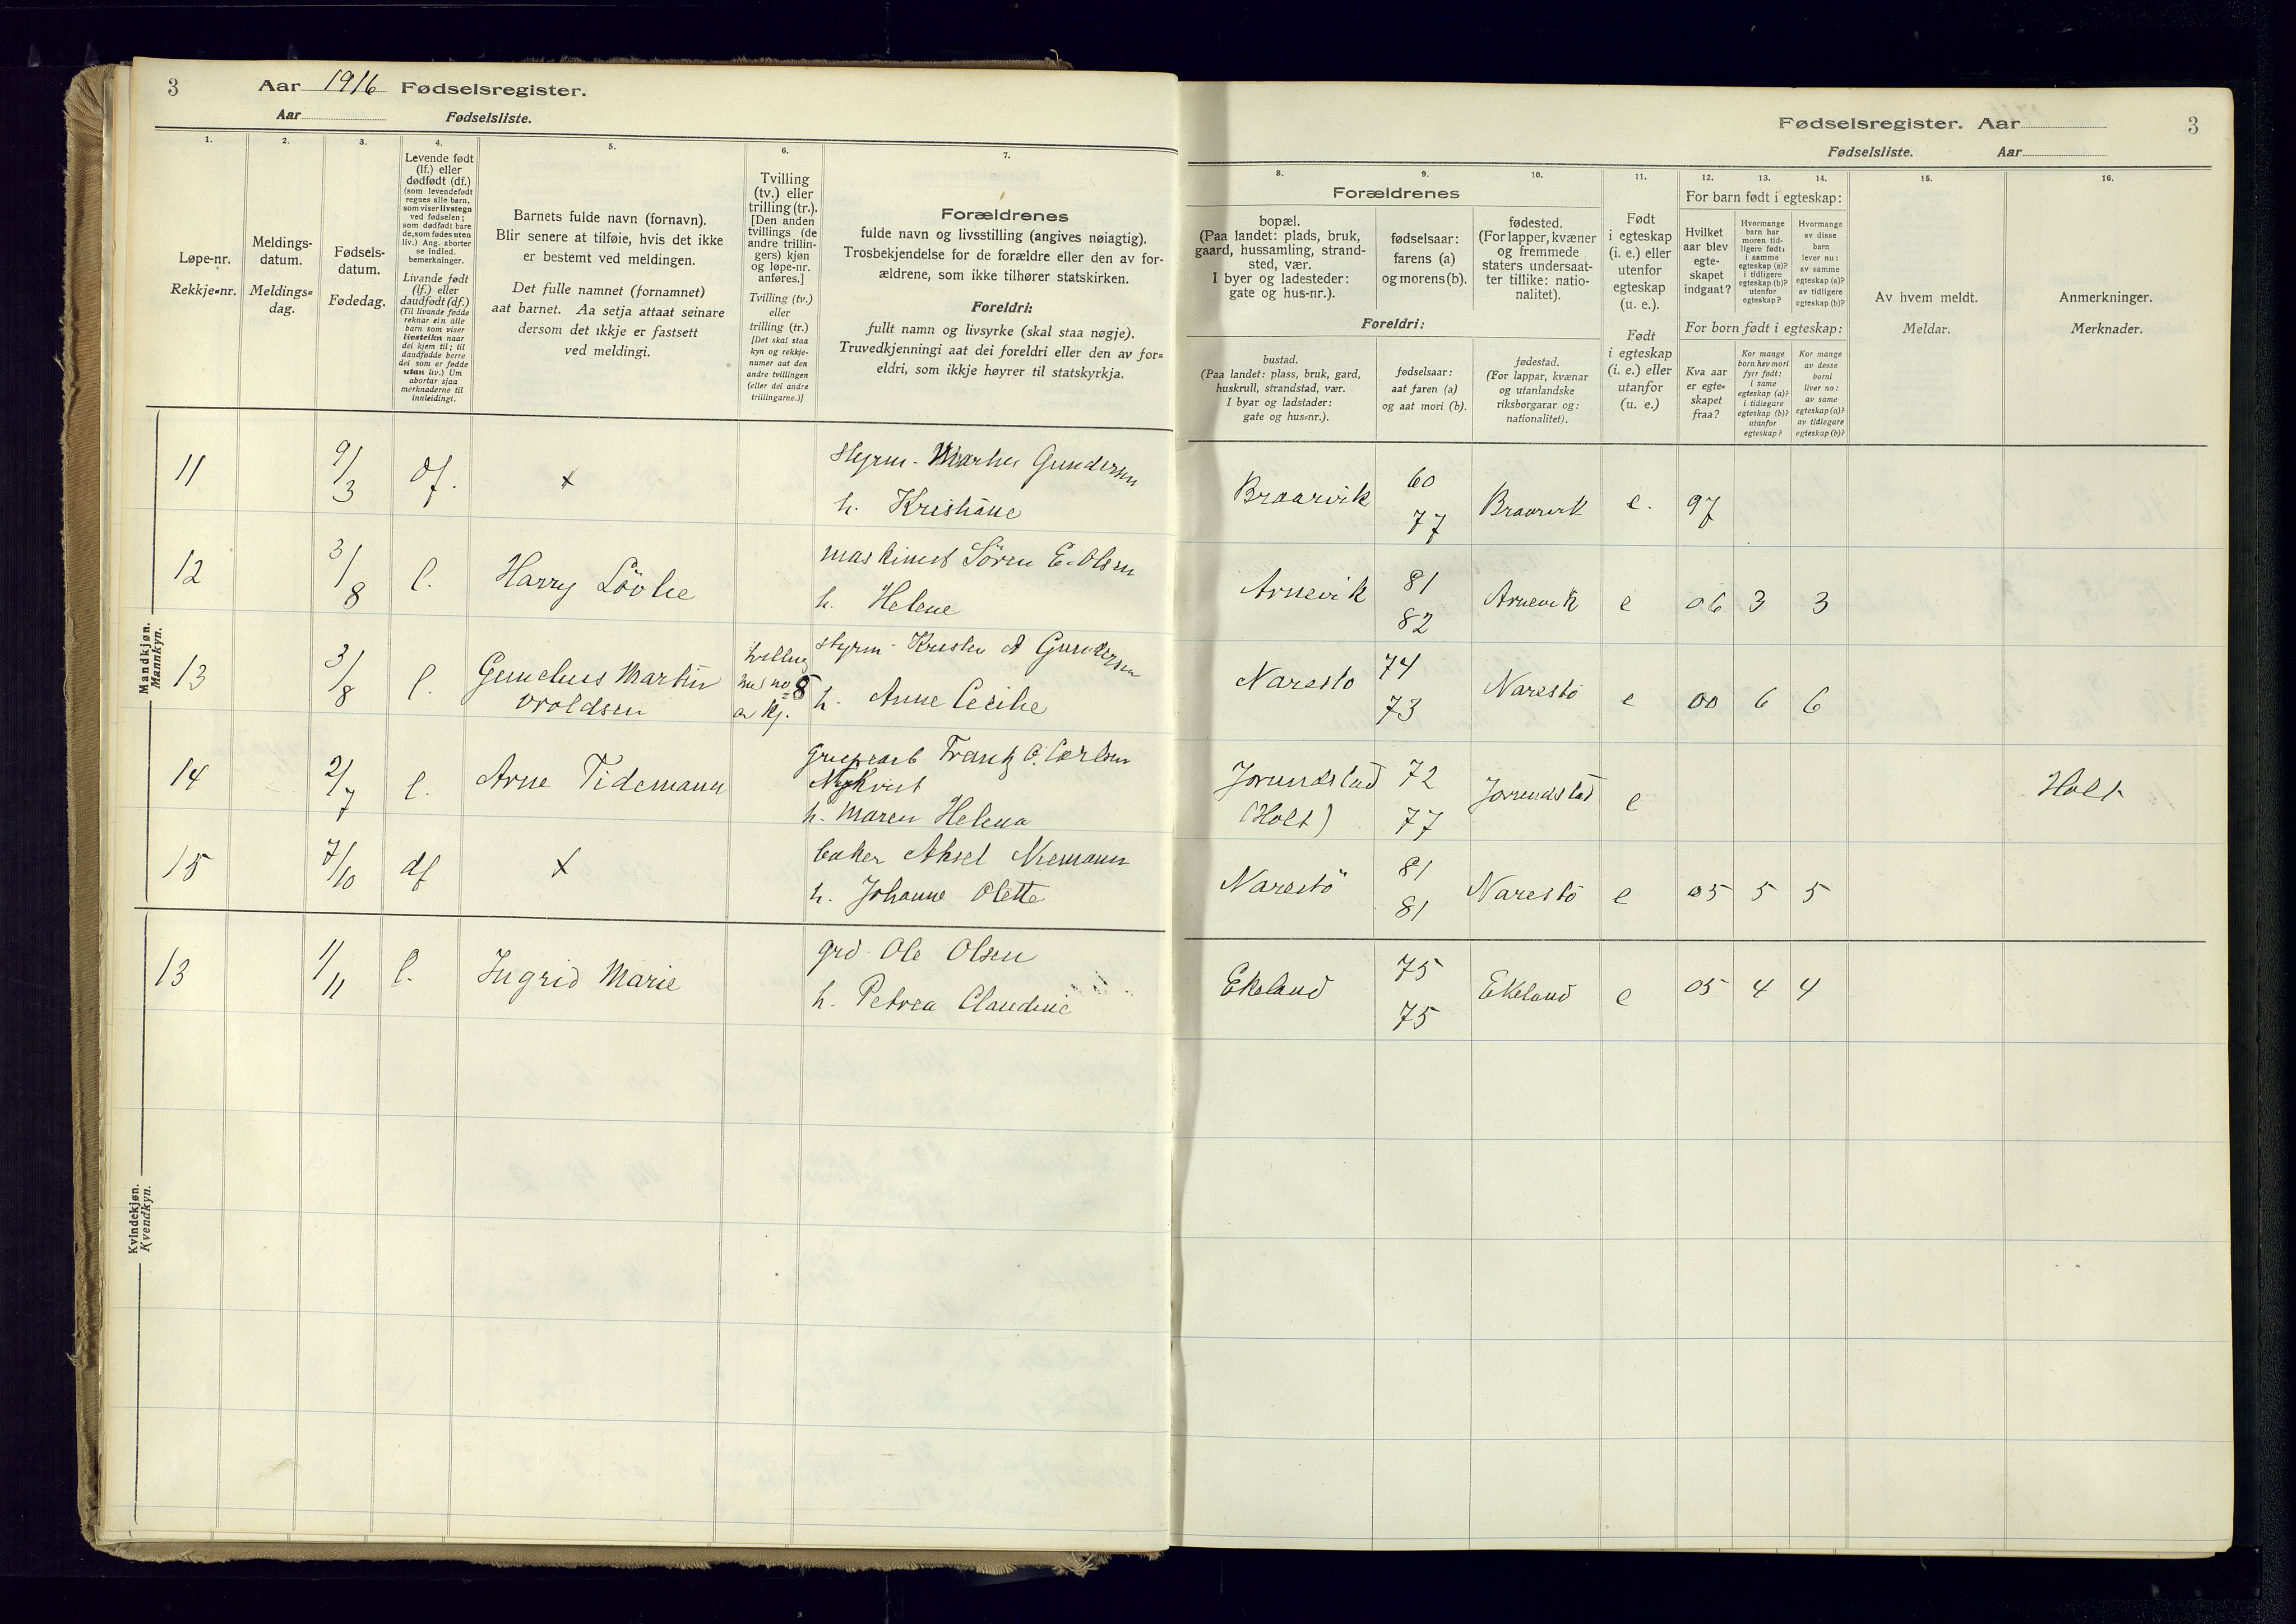 3 Aar 1916 Fødselsregister.
Aar Fødselsliste.
Fødselsregister. Aar 3
Fødselsliste. Aar
1. 2. 3. 4. 5. 6. 7.
Løpe-nr.
Rekkje-nr.
Meldings-
datum.
Meldings-
dag.
Fødsels-
datum.
Fødedag.
Levende født
(lf.) eller
dødfødt (df.)
(som levendefødt
regnes alle barn,
som viser livstegn
ved fødselen;
som dødfødt bare
de, som fødes uten
liv.) Ang. aborter
se indled.
bemerkninger.
Livande født
(lf.) eller
daudfødt (df.)
(Til livande fødde
reknar ein alle
barn som viser
livsteikn naar
dei kjem til; til
daudfødde berre
dei som er fødde
utan liv.) Um
abortar sjaa
merknaderne til
innleidingi.
Barnets fulde navn (fornavn).
Blir senere at tilføie, hvis det ikke
er bestemt ved meldingen.
Det fulle namnet (fornamnet)
aat barnet. Aa setja attaat seinare
dersom det ikkje er fastsett
ved meldingi.
Tvilling
(tv.) eller
trilling (tr.).
[Den anden
tvillings (de
andre trillin-
gers) kjøn
og løpe-nr.
anføres.]
Tvilling (tv.)
eller
trilling (tr.)
[Det skal staa
kyn og rekkje-
numer aat den
andre tvillingen
(eller dei andre
trillingarne.)]
Forældrenes
fulde navn og livsstilling (angives nøiagtig).
Trosbekjendelse for de forældre eller den av for-
ældrene, som ikke tilhører statskirken.
Foreldri:
fullt namn og livsyrke (skal staa nøgje).
Truvedkjenningi aat dei foreldri eller den av for-
eldri, som ikkje høyrer til statskyrkja.
8. 9. 10. 11. 12. 13. 14. 15. 16.
Forældrenes
bopæl.
(Paa landet: plads, bruk,
gaard, hussamling, strand-
sted, vær.
I byer og ladesteder:
gate og hus-nr.).
fødselsaar:
farens (a)
og morens (b).
fødested.
(For lapper, kvæner
og fremmede
staters undersaat-
ter tillike: natio-
nalitet).
Foreldri:
bustad.
(Paa landet: plass, bruk, gard,
huskrull, strandstad, vær.
I byar og ladstader:
gate og hus-nr.).
fødselsaar:
aat faren (a)
og aat mori (b).
fødestad.
(For lappar, kvænar
og utanlandske
riksborgarar og:
nationalitet).
Født
i egteskap
(i. e.) eller
utenfor
egteskap
(u. e.).
Født
i egteskap
(i. e.) eller
utanfor
egteskap
(u. e.)
For barn født i egteskap:
Hvilket
aar blev
egte-
skapet
indgaat?
Hvormange
barn har
moren tid-
ligere født:
i samme
egteskap (a)?
i tidligere
egteskap (b)?
utenfor
egteskap?
Hvormange
av disse
barn
lever nu:
av samme
egteskap (a)?
av tidligere
egteskap (b)?
For born født i egteskap:
Kva aar
er egte-
skapet
fraa?
Kor mange
born hev mori
fyrr født:
i same
egteskap (a)?
i tidlegare
egteskap (b)?
utanfor
egteskap?
Kor mange
av desse
borni
liver no:
av same
egteskap (a)?
av tidlegare
egteskap (b)?
Av hvem meldt.
Meldar.
Anmerkninger.
Merknader.
Mandkjøn.
Mannkyn.
11 9/3 df. x styrm. Gundersen
h. Kristiane
Braarvik 60 77 Braarvik e. 97
12 3/8 l. Harry Lövlie maskinist Sören E. Olsen
h. Helene
Arnevik 81 82 Arnevik e 06 3 3
13 3/8 l. Gunelius Martin
tvilling
med no 8
av kj.
styrm. Kristen A Gundersen
h. Anne Cecilie
Narestö 74 73 Narestö e 00 6 6
14 2/7 l. Arne Tidemann Frantz C. Carlsen
Nykvist
h. Maren Helena
Jorundstad
(Holt)
72 77 Jorundstad e Holt
15 7/10 df x baker Aksel Niemann
h. Johanne Olette
Narestö 81 81 Narestö e 05 5 5
Kvindekjøn.
Kvendkyn.
13 1/11 l. Ingrid Marie grd. Ole Olsen
h. Petrea Claudine
Ekeland 75 75 Ekeland e 05 4 4